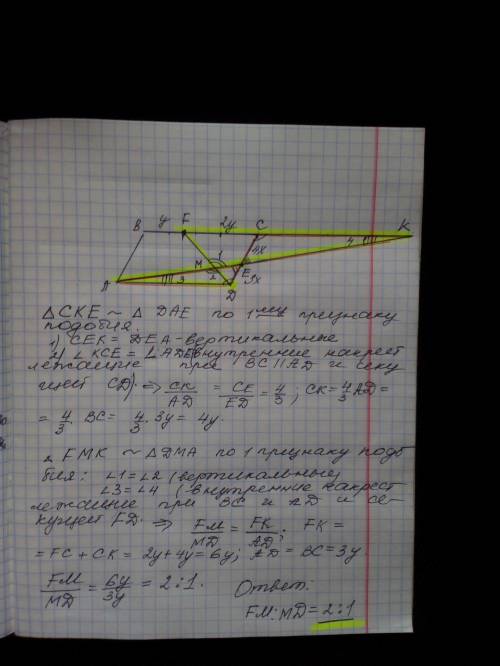 B y F 2y C K
4x
M 1 2 E 4
A 3 D 3x
△CKE ~ △ DAE по 1му признаку
подобия.
1) CEK = DEA - вертикальные
2) ∠ KCE = ∠ADE (внутренние накрест
лежащие при BC || AD и секу
щей CD) ⇒ CK/AD = CE/ED = 4/3; CK = 4/3 AD =
= 4/3 · BC = 4/3 · 3y = 4y.
2. FMK ~ △DMA по 1 признаку подо
бия: ∠1 = ∠2 (вертикальные)
∠3 = ∠4 (внутренние накрест
лежащие при BC и AD и се-
кущей FD. ⇒ FM/MD = FK/AD; FK =
= FC + CK = 2y + 4y = 6y; AD = BC = 3y.
FM/MD = 6y/3y = 2:1. Ответ:
FM:MD = 2:1